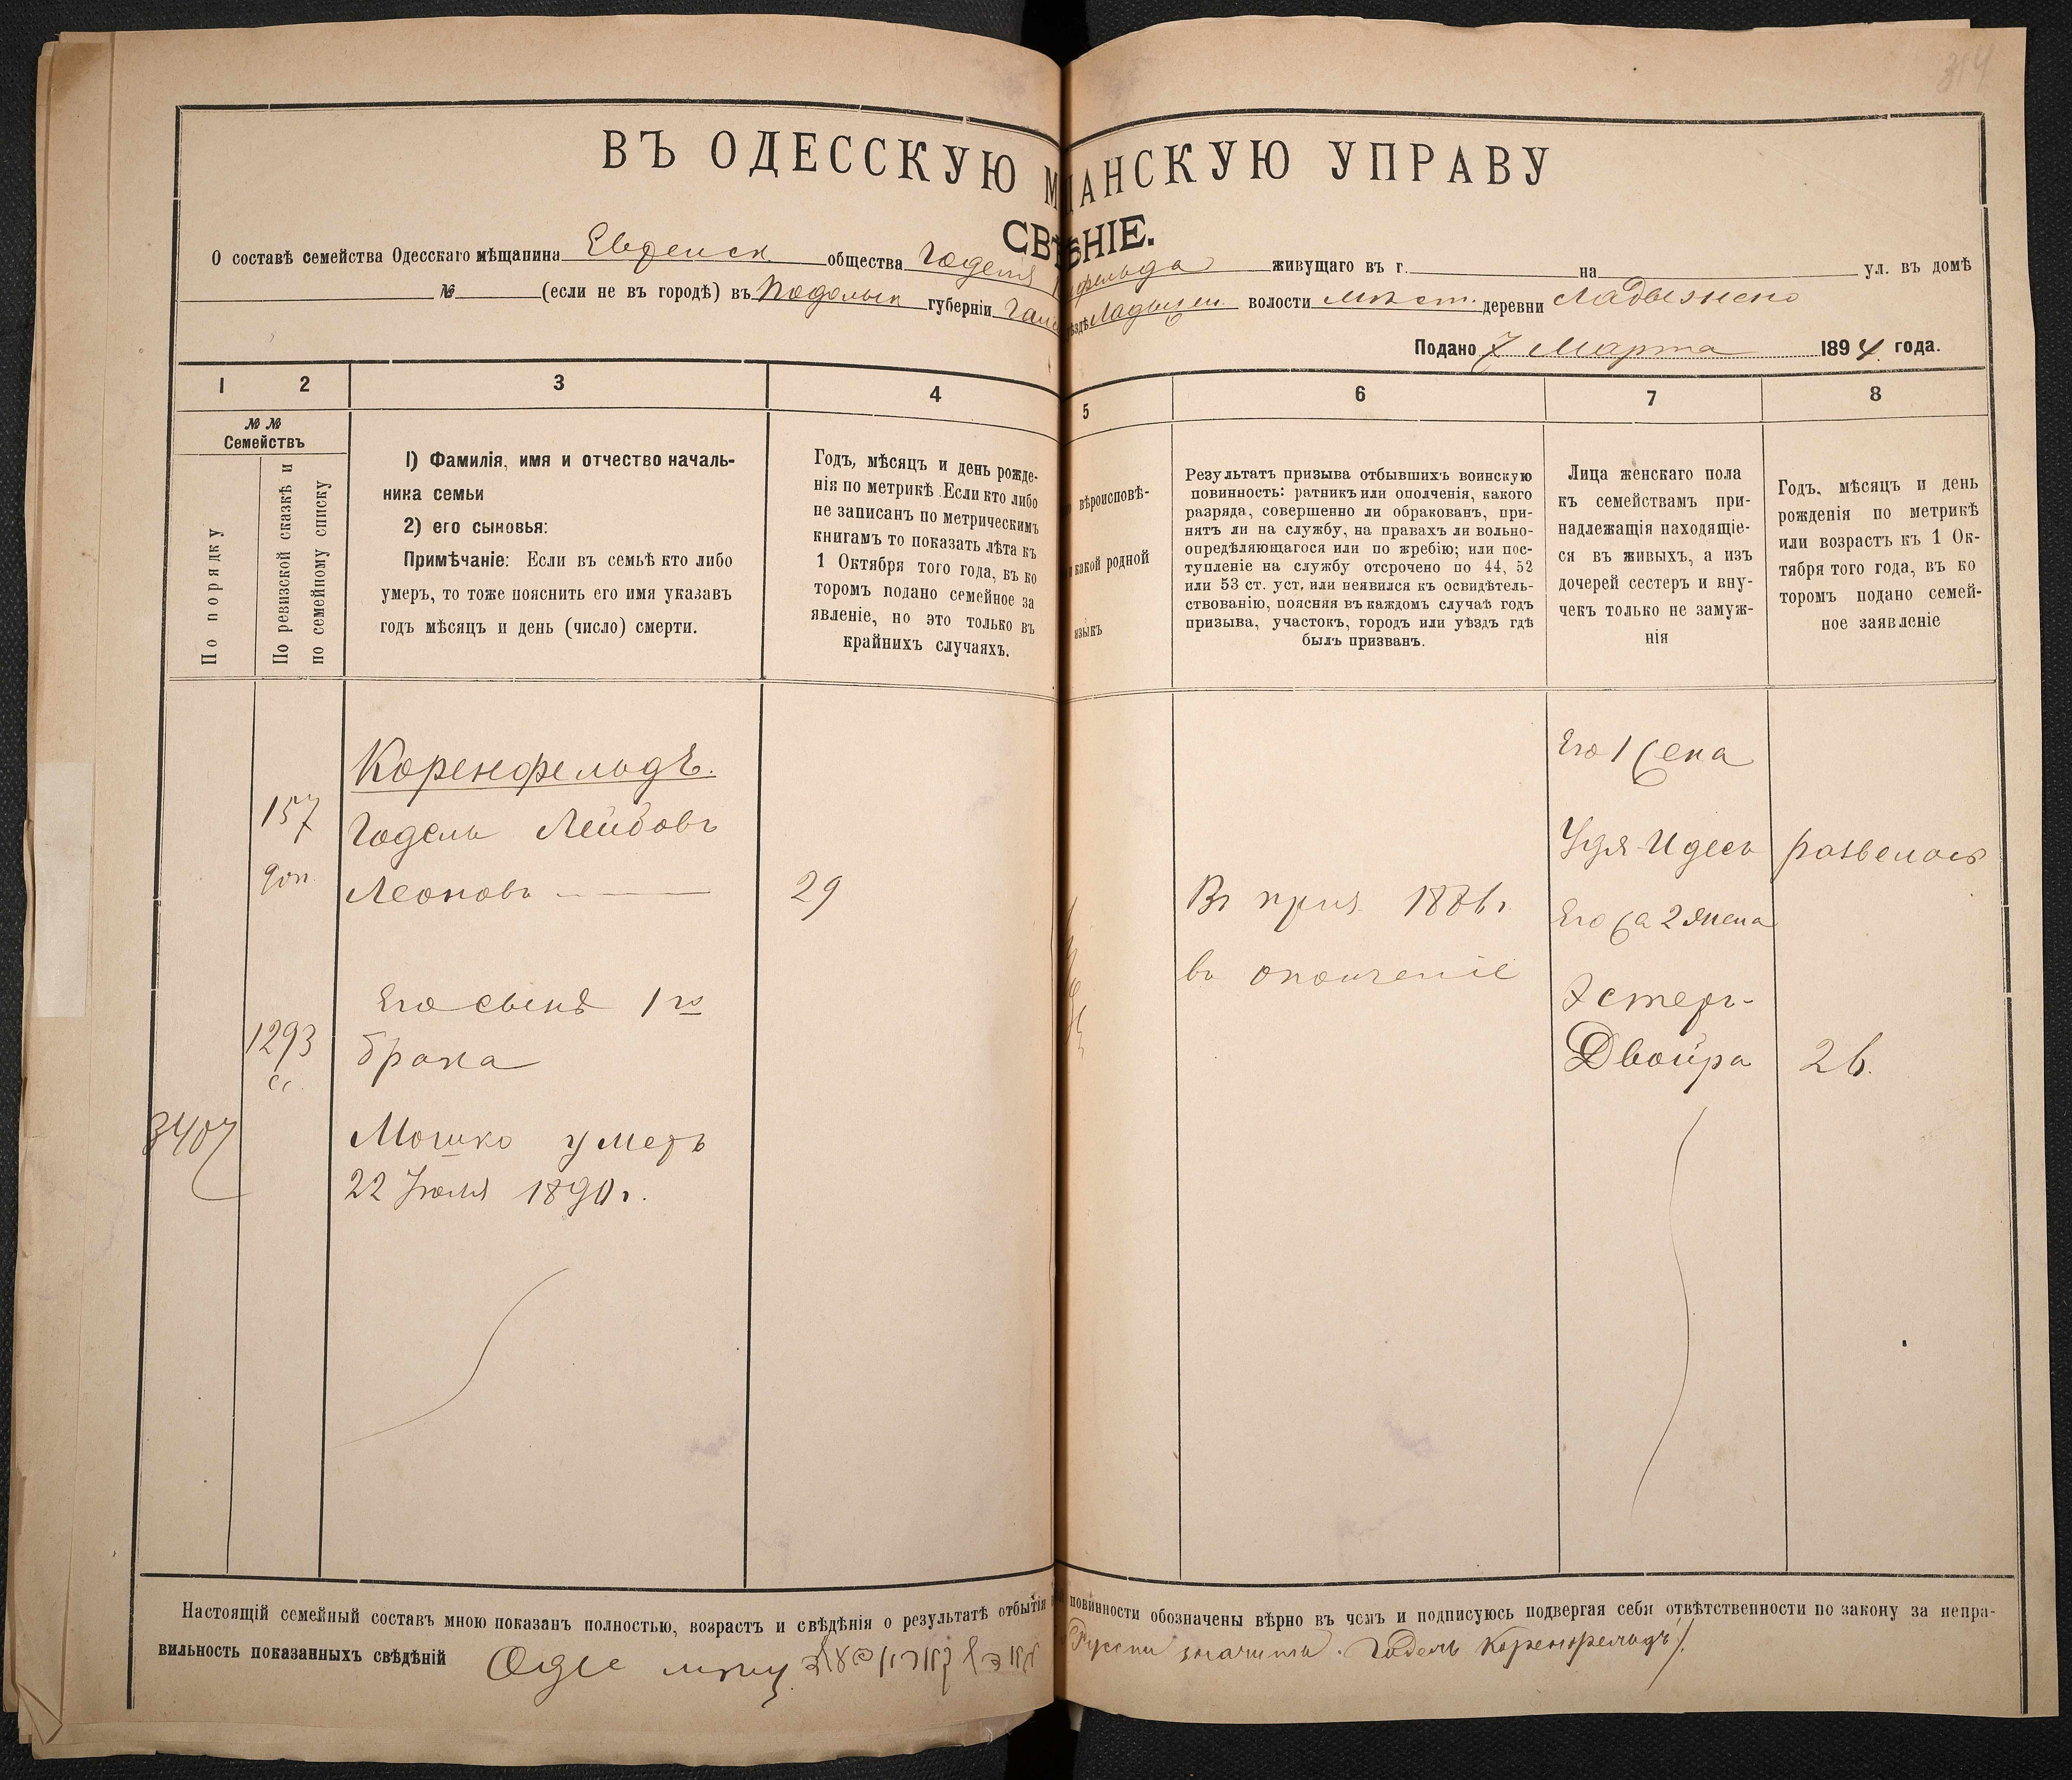 314
ВЪ ОДЕССКУЮ М ПАНСКУЮ УПРАВУ
СВ ѢНІЕ.
О составѣ семейства Одесскаго мѣщанина Еврейск общества Годеля фельда живущаго въ г. на ул. въ домѣ
№ (если не въ городѣ) въ Подольск губерніи Гайс ѣздѣ Ладыжин. волости мѣст. деревни Ладыжено
Подано 7 Марта 1894 года.
1 2 3 4 5 6 7 8
№ № Семействъ
По порядку
По ревизской сказкѣ и по семейному списку
1) Фамилія, имя и отчество началь-
ника семьи
2) его сыновья:
Примѣчаніе: Если въ семьѣ кто либо
умеръ, то тоже пояснить его имя указавъ
годъ мѣсяцъ и день (число) смерти.
Годъ, мѣсяцъ и день рожде-
нія по метрикѣ. Если кто либо
не записанъ по метрическимъ
книгамъ то показать лѣта къ
1 Октября того года, въ ко
торомъ подано семейное за
явленіе, но это только въ
крайнихъ случаяхъ.
вѣроисповѣ-
какой родной
языкъ
Результатъ призыва отбывшихъ воинскую
повинность: ратникъ или ополченія, какого
разряда, совершенно ли обракованъ, при-
нятъ ли на службу, на правахъ ли вольно-
опредѣляющагося или по жребію; или пос-
тупленіе на службу отсрочено по 44, 52
или 53 ст. уст, или неявился къ освидѣтель-
ствованію, поясняя въ каждомъ случаѣ годъ
призыва, участокъ, городъ или уѣздъ гдѣ
былъ призванъ.
Лица женскаго пола
къ семействамъ при-
надлежащія находящіе-
ся въ живыхъ, а изъ
дочерей сестеръ и вну-
чекъ только не замуж-
нія
Годъ, мѣсяцъ и день
рожденія по метрикѣ
или возрастъ къ 1 Ок-
тября того года, въ ко
торомъ подано семей-
ное заявленіе
Коренфельдъ.
157
доп
Годель Лейбовъ
Леоновъ
29
Его сынъ 1го
1293
сс.
брака
3407
Мошко умеръ
22 Іюля 1890г.
Въ приз. 1886г.
въ ополченіе
Его 1 жена
Удя-Идесъ развелась
Его 2 жена
Эстеръ-
Двойра 26.
Настоящій семейный составъ мною показанъ полностью, возрастъ и свѣдѣнія о результатѣ отбытія повинности обозначены вѣрно въ чемъ и подписуюсь подвергая себя отвѣтственности по закону за непра-
вильность показанныхъ свѣдѣній Одес мѣщ. Русски значитъ. Годель Коренфельдъ